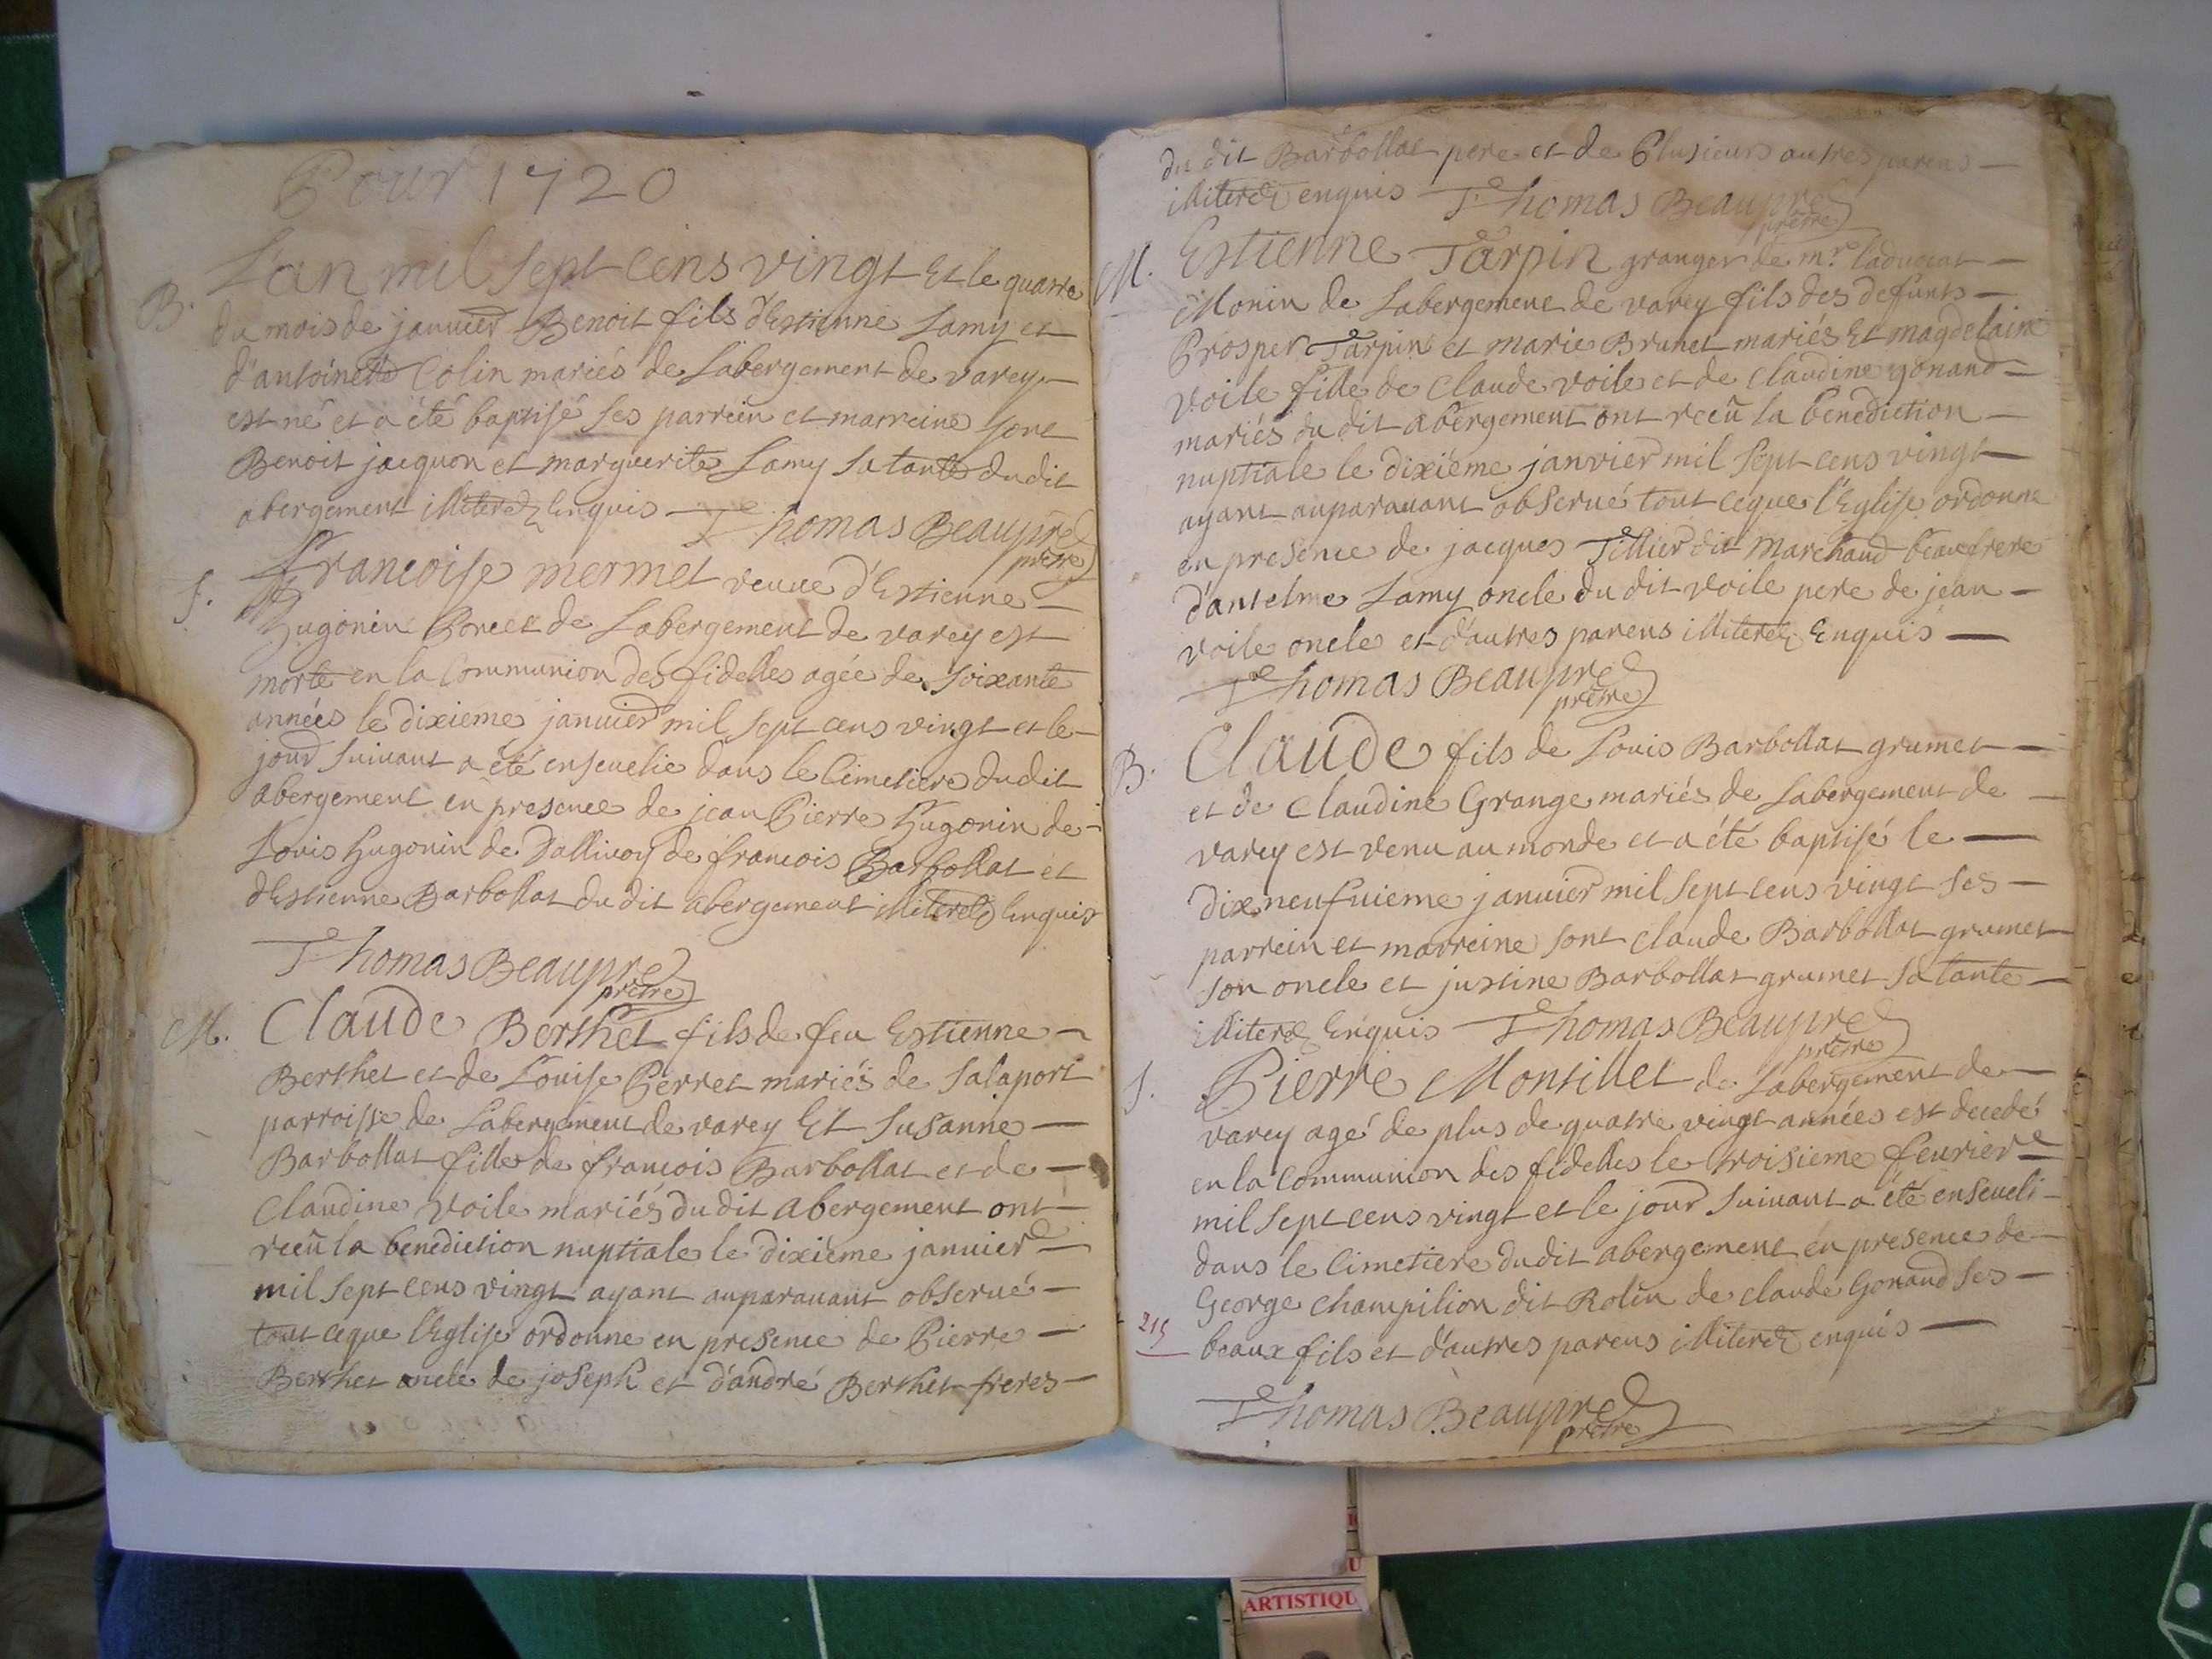 Pour 1720
B.
L'an mil sept cens vingt et le quatre
du mois de januier Benoit fils d'Estienne Lamy et
d'antoinette Colin mariés de Labergement de varey
est né et a été baptisé ses parrein et marreine sont
Benoit jacquon et marguerite Lamy sa tante dudit
abergement illiteréz enquis Thomas Beaupre
prêtre
S.
Francoise mermet veuve d'Estienne
Hugonin de Labergement de varey est
morte en la Communion des fidelles agée de soixante
années le dixieme januier mil sept cens vingt et le
jour suiuant a été enseuelie dans le Cimetiere dudit
abergement en presence de jean Pierre Hugonin de
Louis Hugonin de Dalliuoy de francois Barbollat et
d'Estienne Barbollat du dit abergement illiteréz enquis
Thomas Beaupre
prêtre
M.
Claude Berthet fils de feu Estienne
Berthet et de Louise Perret mariés de Salaport
parroisse de Labergement de varey Et Susanne
Barbollat fille de francois Barbollat et de
Claudine Voile mariés du dit abergement ont
recû la benediction nuptiale le dixieme januier
mil sept cens vingt ayant auparauant obserué
tout ceque l'Eglise ordonne en presence de Pierre
Berthet oncle de joseph et d'andré Berthet freres
du dit Barbollat pere et de Plusieurs autres parens
illiteréz enquis Thomas Beaupre
prêtre
M.
Estienne Tarpin granger de mr. laduocat
Monin de Labergement de varey fils des defunts
Prosper Tarpin et marie Brunet mariés Et magdelaine
voile fille de Claude voile et de claudine gonand
mariés du dit abergement ont recû la benediction
nuptiale le dixiéme janvier mil sept cens vingt
ayant auparauant obserué tout ceque l'Eglise ordonne
en presence de jacques Tillier dit Marchand beaufrere
d'antelme Lamy oncle du dit voile pere de jean
voile oncle et d'autres parens illiteréz Enquis
Thomas Beaupre
prêtre
B.
Claude fils de Louis Barbollat grumet
et de Claudine Grange mariés de Labergement de
varey est venu au monde et a été baptisé le
dixneufuieme januier mil sept cens vingt ses
parrein et marreine sont claude Barbollat grumet
son oncle et justine Barbollat grumet sa tante
illiteréz Enquis Thomas Beaupre
prêtre
S.
Pierre Montillet de Labergement de
varey agé de plus de quatre vingt années est decedé
en la Communion des fidelles le troisieme feurier
mil sept cens vingt et le jour suiuant a été enseueli
dans le Cimetiere dudit abergement en presence de
George champilion dit Rolin de claude Gonand ses
215
beaux fils et d'autres parens illiteréz enquis
Thomas Beaupre
prêtre
ARTISTIQU